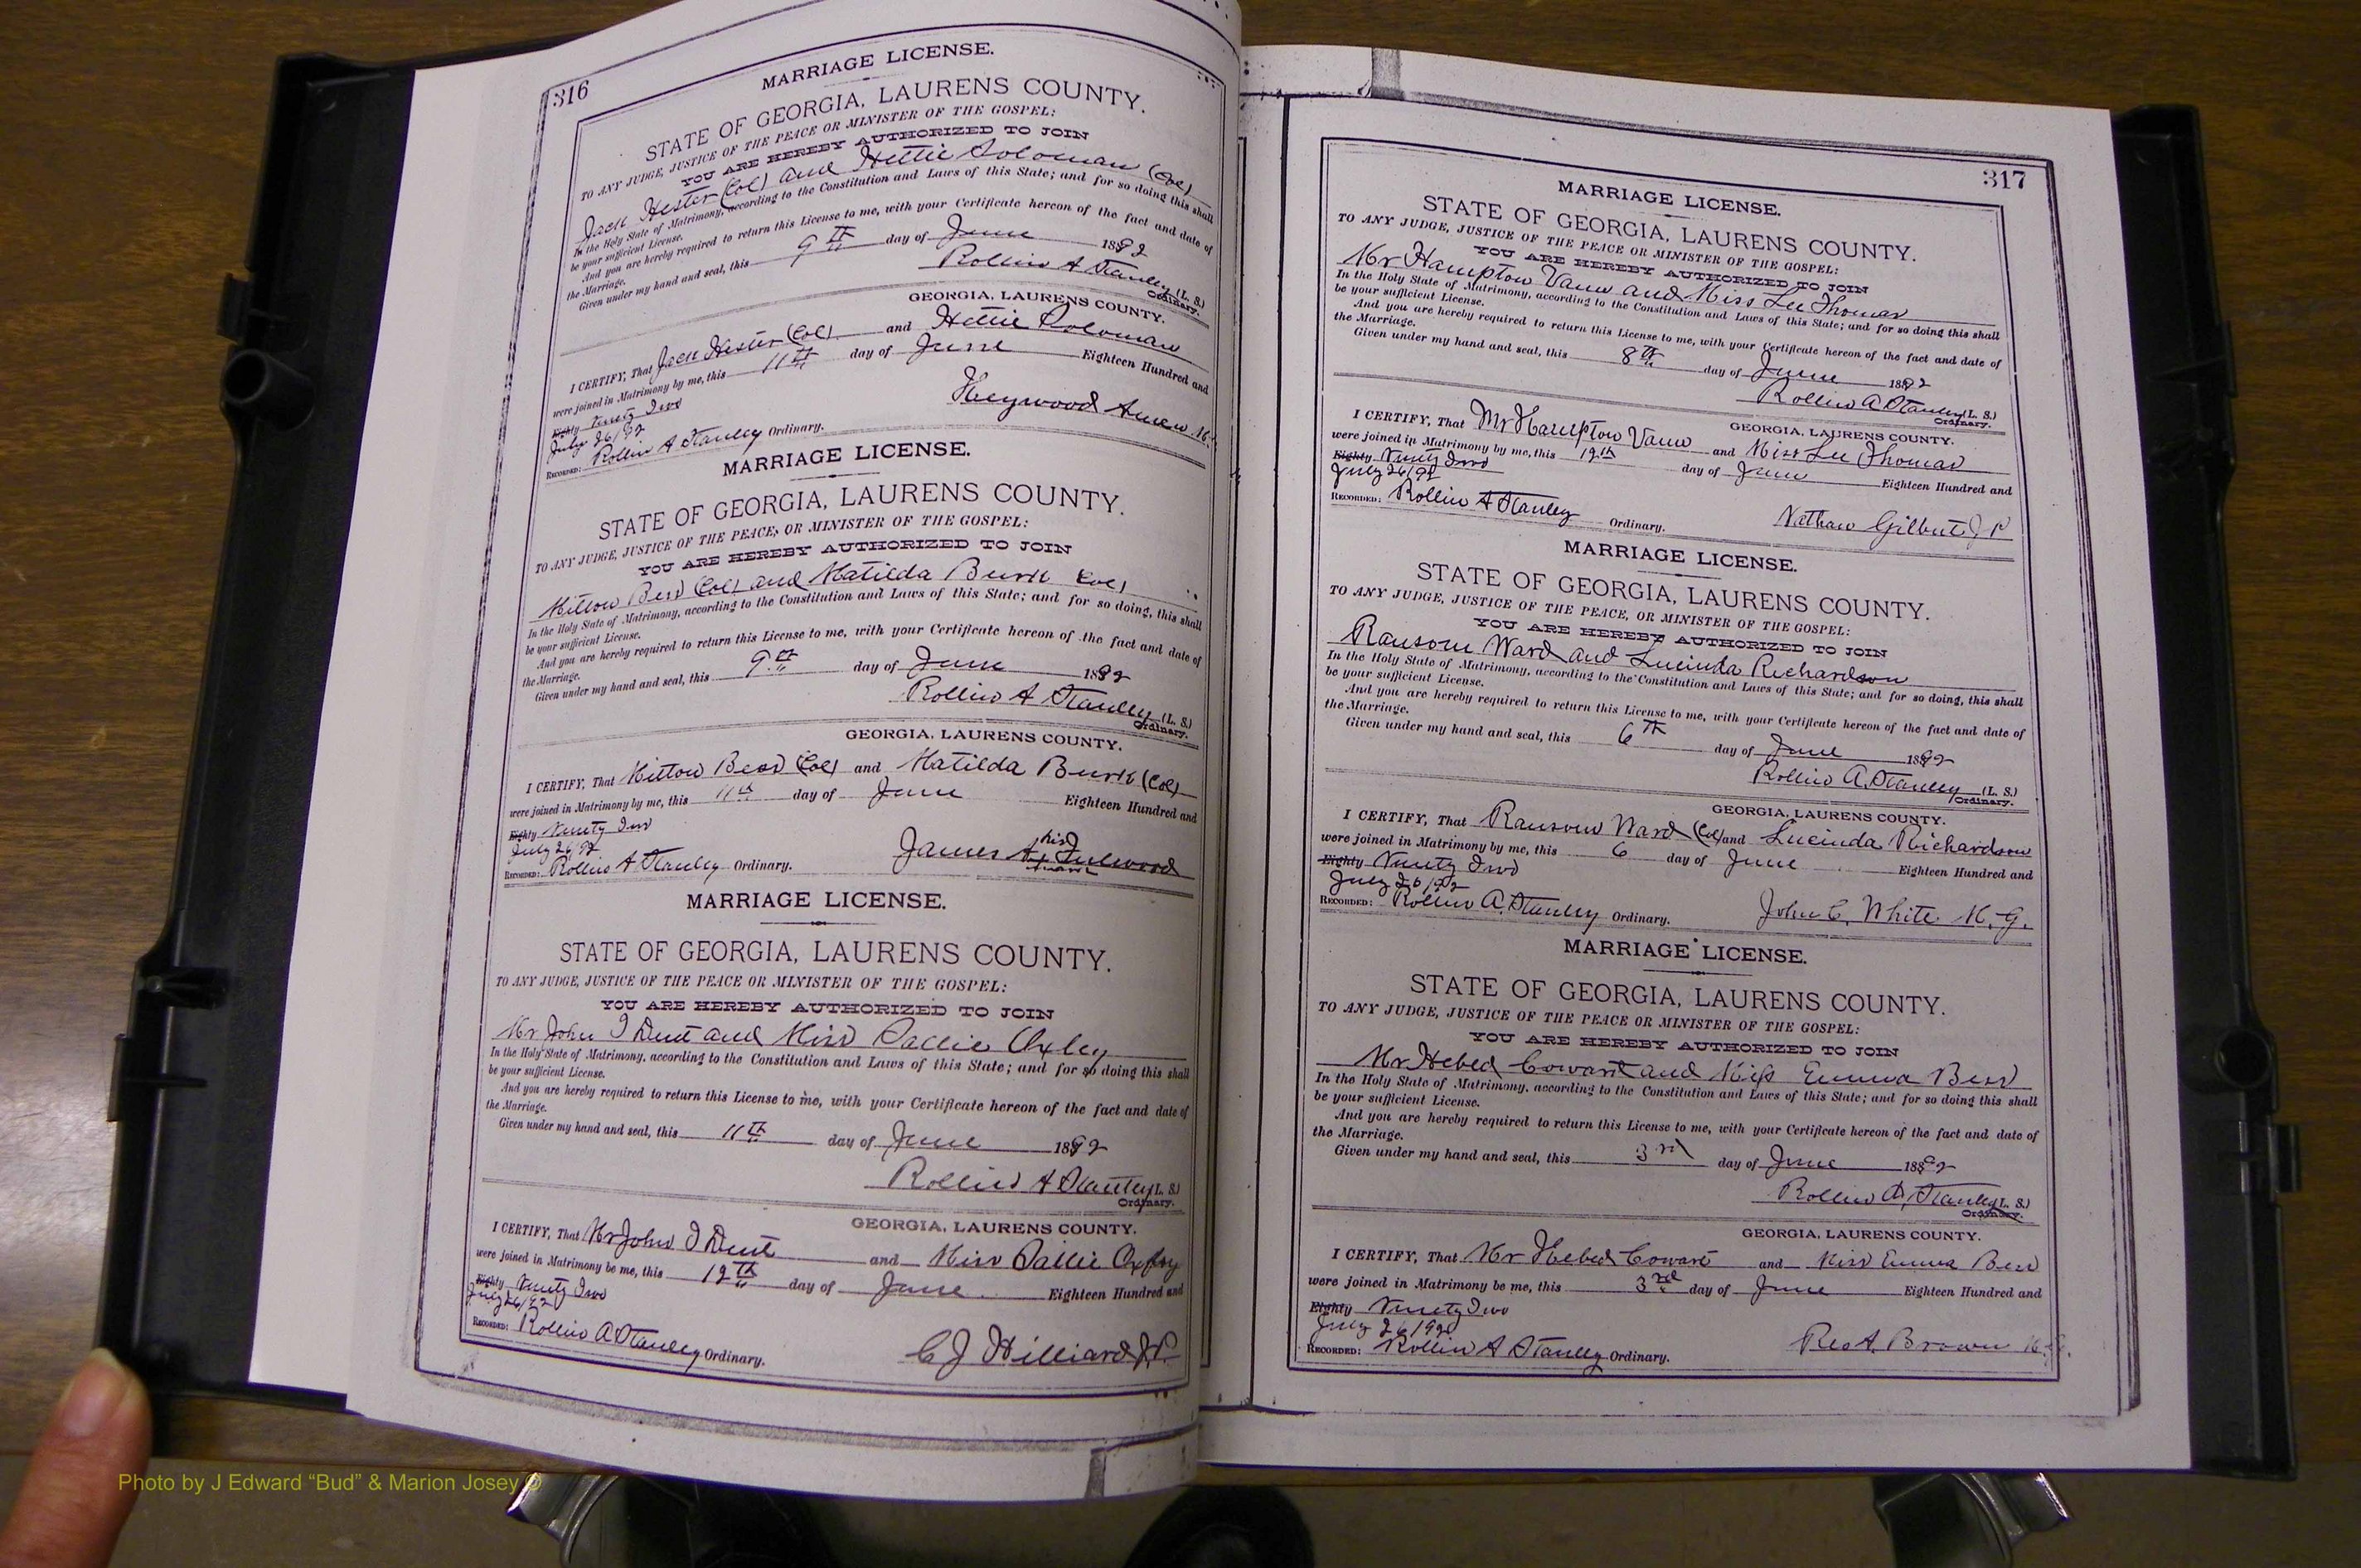 316
MARRIAGE LICENSE.
STATE OF GEORGIA, LAURENS COUNTY.
TO ANY JUDGE, JUSTICE OF THE PEACE OR MINISTER OF THE GOSPEL:
YOU ARE HEREBY AUTHORIZED TO JOIN
Jack Hester (Col) and Hettie Soloman (Col)
In the Holy State of Matrimony, according to the Constitution and Laws of this State; and for so doing this shall
be your sufficient License.
And you are hereby required to return this License to me, with your Certificate hereon of the fact and date of
the Marriage.
Given under my hand and seal, this 9th day of June 1892
Rollin A Stanley (L. S.)
Ordinary.
GEORGIA, LAURENS COUNTY.
I CERTIFY, That Jack Hester (Col) and Hettie Soloman
were joined in Matrimony by me, this 11th day of June Eighteen Hundred and
Eighty Ninety Two
July 26/92
RECORDED: Rollin A Stanley Ordinary.
Heywood
MARRIAGE LICENSE.
STATE OF GEORGIA, LAURENS COUNTY.
TO ANY JUDGE, JUSTICE OF THE PEACE, OR MINISTER OF THE GOSPEL:
YOU ARE HEREBY AUTHORIZED TO JOIN
(Col) and Matilda Burk (Col)
In the Holy State of Matrimony, according to the Constitution and Laws of this State; and for so doing, this shall
be your sufficient License.
And you are hereby required to return this License to me, with your Certificate hereon of the fact and date of
the Marriage.
Given under my hand and seal, this 9th day of June 1892
Rollin A Stanley (L. S.)
Ordinary.
GEORGIA, LAURENS COUNTY.
I CERTIFY, That (Col) and Matilda Burk (Col)
were joined in Matrimony by me, this 11th day of June Eighteen Hundred and
Eighty Ninety Two
July 26/92
RECORDED: Rollin A Stanley Ordinary.
James his
mark
MARRIAGE LICENSE.
STATE OF GEORGIA, LAURENS COUNTY.
TO ANY JUDGE, JUSTICE OF THE PEACE OR MINISTER OF THE GOSPEL:
YOU ARE HEREBY AUTHORIZED TO JOIN
Mr John I Dent and Miss Sallie Oxley
In the Holy State of Matrimony, according to the Constitution and Laws of this State; and for so doing this shall
be your sufficient License.
And you are hereby required to return this License to me, with your Certificate hereon of the fact and date of
the Marriage.
Given under my hand and seal, this 11th day of June 1892
Rollin A Stanley (L. S.)
Ordinary.
GEORGIA, LAURENS COUNTY.
I CERTIFY, That Mr John I Dent and Miss Sallie Oxley
were joined in Matrimony be me, this 12th day of June Eighteen Hundred and
Eighty Ninety Two
July 26/92
RECORDED: Rollin A Stanley Ordinary.
C J Hilliard J.P.
317
MARRIAGE LICENSE.
STATE OF GEORGIA, LAURENS COUNTY.
TO ANY JUDGE, JUSTICE OF THE PEACE OR MINISTER OF THE GOSPEL:
YOU ARE HEREBY AUTHORIZED TO JOIN
Mr Hampton Vann and Miss Lee Thomas
In the Holy State of Matrimony, according to the Constitution and Laws of this State; and for so doing this shall
be your sufficient License.
And you are hereby required to return this License to me, with your Certificate hereon of the fact and date of
the Marriage.
Given under my hand and seal, this 8th day of June 1892
Rollin A Stanley (L. S.)
Ordinary.
GEORGIA, LAURENS COUNTY.
I CERTIFY, That Mr Hampton Vann and Miss Lee Thomas
were joined in Matrimony by me, this 12th day of June Eighteen Hundred and
Eighty Ninety Two
July 26/92
RECORDED: Rollin A Stanley Ordinary.
Nathan Gilbert J P
MARRIAGE LICENSE.
STATE OF GEORGIA, LAURENS COUNTY.
TO ANY JUDGE, JUSTICE OF THE PEACE, OR MINISTER OF THE GOSPEL:
YOU ARE HEREBY AUTHORIZED TO JOIN
Ransom Ward and Lucinda Richardson
In the Holy State of Matrimony, according to the Constitution and Laws of this State; and for so doing, this shall
be your sufficient License.
And you are hereby required to return this License to me, with your Certificate hereon of the fact and date of
the Marriage.
Given under my hand and seal, this 6th day of June 1892
Rollin A. Stanley (L. S.)
Ordinary.
GEORGIA, LAURENS COUNTY.
I CERTIFY, That Ransom Ward (Col) and Lucinda Richardson
were joined in Matrimony by me, this 6 day of June Eighteen Hundred and
Eighty Ninety Two
July 26/92
RECORDED: Rollin A. Stanley Ordinary.
John C. White M.G.
MARRIAGE LICENSE.
STATE OF GEORGIA, LAURENS COUNTY.
TO ANY JUDGE, JUSTICE OF THE PEACE OR MINISTER OF THE GOSPEL:
YOU ARE HEREBY AUTHORIZED TO JOIN
Mr Hebed Cowart and Miss Emma Bess
In the Holy State of Matrimony, according to the Constitution and Laws of this State; and for so doing this shall
be your sufficient License.
And you are hereby required to return this License to me, with your Certificate hereon of the fact and date of
the Marriage.
Given under my hand and seal, this 3rd day of June 1892
Rollin A. Stanley (L. S.)
Ordinary.
GEORGIA, LAURENS COUNTY.
I CERTIFY, That Mr Hebed Cowart and Miss Emma Bess
were joined in Matrimony be me, this 3rd day of June Eighteen Hundred and
Eighty Ninety Two
July 26/92
RECORDED: Rollin A Stanley Ordinary.
Brown M.G.
Photo by J Edward “Bud” & Marion Josey ©